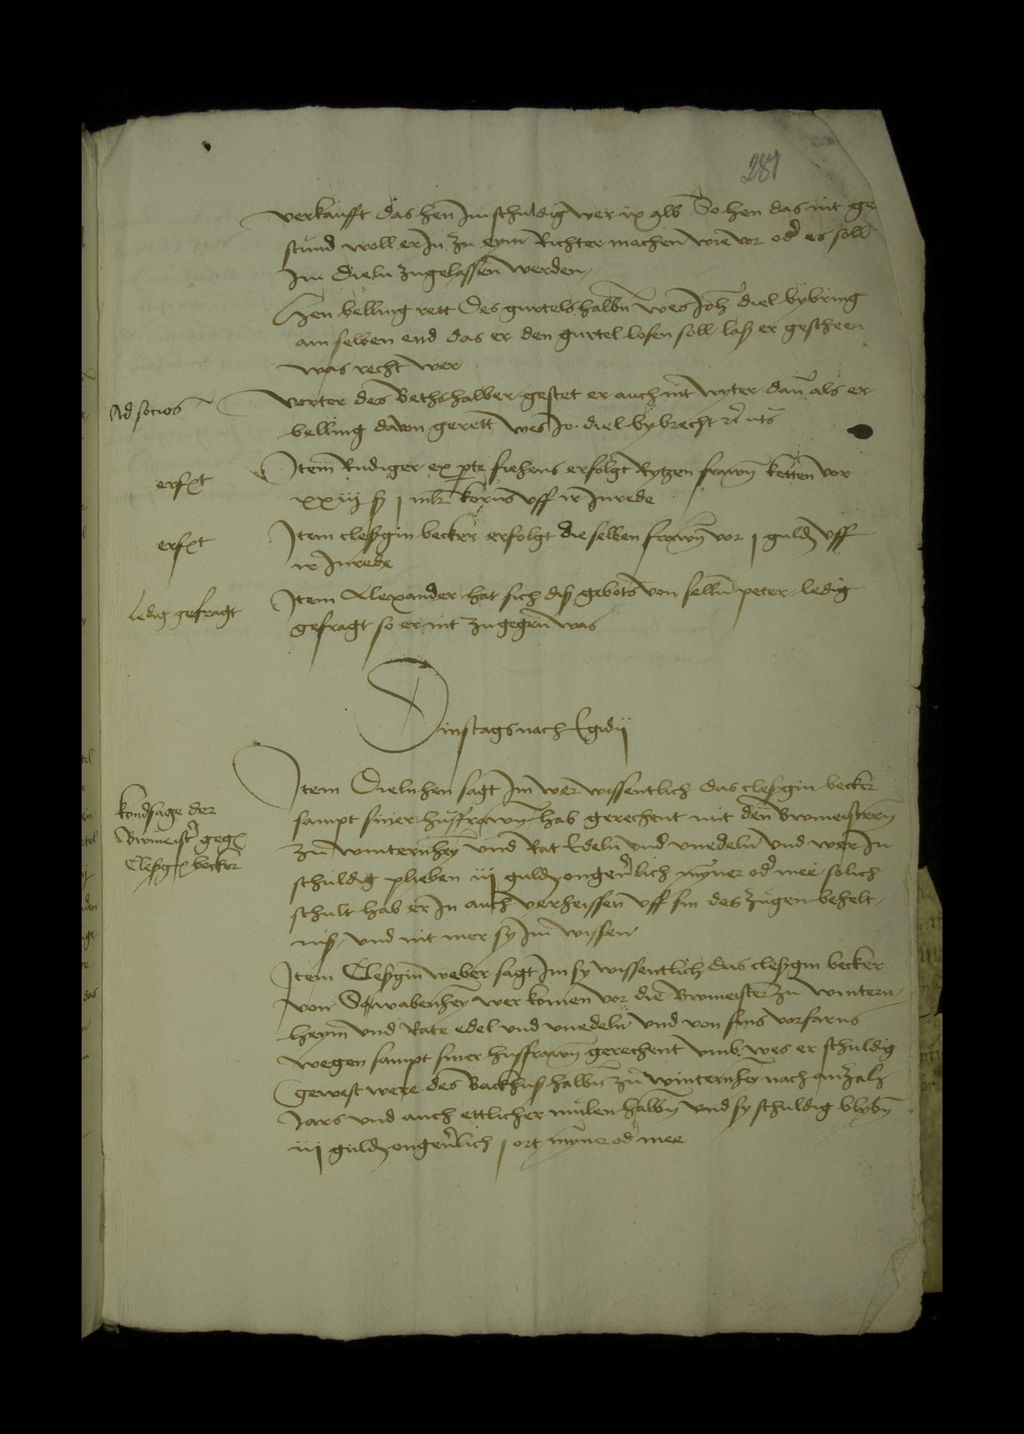 287
verkaufft das hen Im schuldig wer ix alb So hen das nit ge
stund woll er In zu eym Richter machen wie vor od es soll
Im Dieln zugelassen werden
Hen belling rett Des gurtels halbn wes Joh diel bybring
am selben end das er den gurtel losen soll laß er gescheen
was recht wer
Ad socios
vorter des Beths halber gestet er auch nit wyter dan als er
belling davon gerett wes Jo. diel bybrecht
erfxt
Item Rudiger ex pte fiehens erfolgt Rytzen frawe ketten vor
xxiij ß j mlr korns uff ir Inrede
erfxt
Item cleßgin becker erfolgt die selben frawe vor j guld uff
ir Inrede
ledig gefragt
Item Alexander hat sich diß gebots von selln peter ledig
gefragt so er nit zugegen was
Dinstags nach Egidij
kondsage der
Bwmeist gegen
Cleßgin becker
Item Dieln hen sagt Im wer wissentlich das cleßgin becker
sampt siner hußfrawe hab gerechent mit den Bwmeistern
zu winternhey und Rat Edeln und unedeln und wer In
schuldig plieben iij guld ongeverlich myner od mee solich
schult hab er In auch verheissen uff sin des zugen behelt
niß und nit mer sy Im wissen
Item Cleßgin weber sagt Im sy wissentlich das cleßgin becker
von Swabenhey wer komen vor die Bwmeister zu wintern
heym und Rate edel und unedeln und von sins vorfarns
wegen sampt siner hußfrawe gerechent umb wes er schuldig
gewest were des Backhuß halbn zu winternhey nach anzale
Jars und auch ettlicher mulen halbn und sy schuldig blybn
iij guld ongeverlich j ort myner od mee